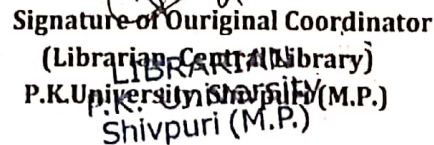 Signature of Ouriginal Coordinator
(Librarian Central Library)
LIBRARIAN
P.K.University Shivpuri (M.P.)
P.K. University
Shivpuri (M.P.)